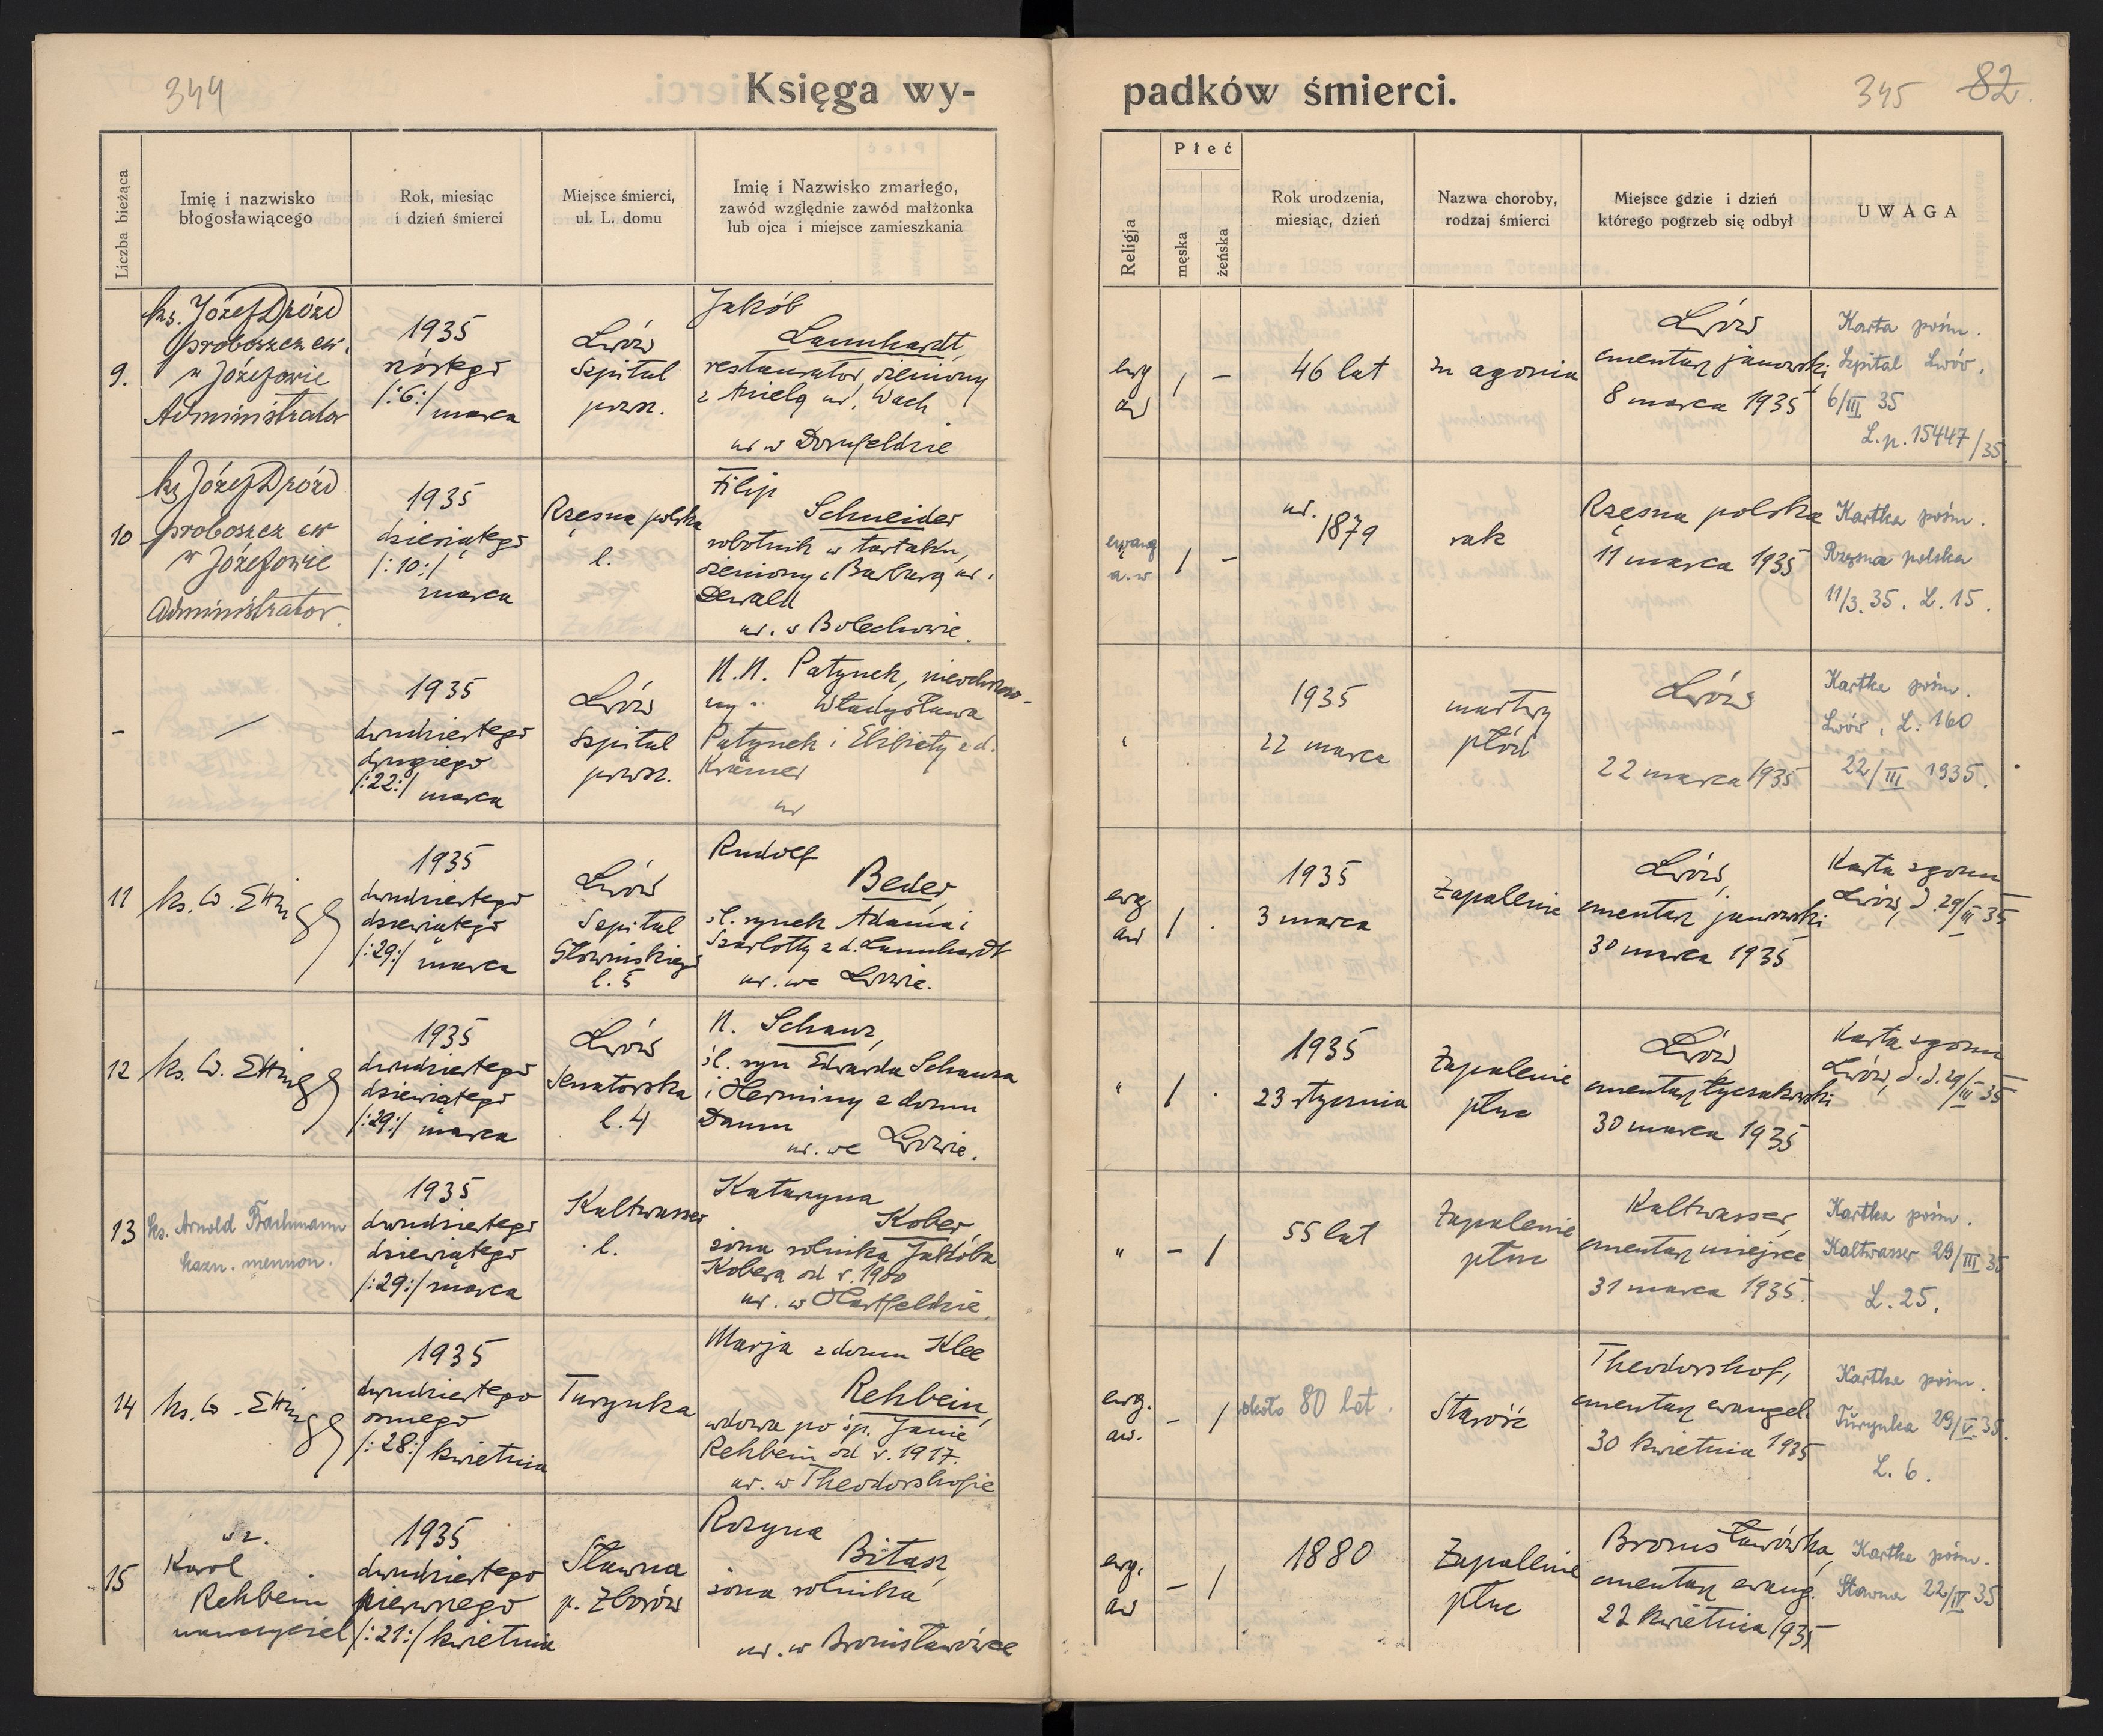 344
Księga wy-
padków śmierci.
345 82.
Liczba bieżąca
Imię i nazwisko
błogosławiącego
Rok, miesiąc
i dzień śmierci
Miejsce śmierci,
ul. L. domu
Imię i Nazwisko zmarłego,
zawód względnie zawód małżonka
lub ojca i miejsce zamieszkania
Religja
Płeć
męska
żeńska
Rok urodzenia,
miesiąc, dzień
Nazwa choroby,
rodzaj śmierci
Miejsce gdzie i dzień
którego pogrzeb się odbył
UWAGA
9.
ks. Józef Dróżd
proboszcz ew.
w Józefowie
Administrator
1935
szóstego
/:6:/ marca
Lwów
Szpital
powsz.
Jakób
Lannhardt,
restaurator, żeniony
z Anielą ur. Wach
ur w Dornfeldzie
ewg
aw
/ -
46 lat
in agonia
Lwów
cmentarz janowski
8 marca 1935
Karta pośm.
Szpital Lwów.
6/III 35
L.p. 15447/35.
10
ks Józef Dróżd
proboszcz ew
w Józefowie
Administrator.
1935
dziesiątego
/:10:/
marca
Rzęsna polska
l.
Filip
Schneider
robotnik w tartaku,
żeniony z Barbarą ur.
Dewald
ur. w Bolechowie.
ewang
a.w
/ -
ur. 1879
rak
Rzęsna polska
11 marca 1935
Kartka pośm.
Rzęsna polska
11/3. 35. L. 15.
-
/
1935
dwudziestego
drugiego
/:22:/ marca
Lwów
Szpital
powsz.
N.N. Patynek, nieochrzczo-
ny - Władysława
Patynek i Elżbiety z d.
Krämer
ur
1935
22 marca
martwy
płód
Lwów
22 marca 1935
Kartka pośm.
Lwów, L. 160
22/III 1935.
11
ks. W. Etting
1935
dwudziestego
dziewiątego
/:29:/ marca
Lwów
Szpital
Głowińskiego
l. 5
Rudolf
Beder,
śl. synek Adama i
Szarlotty z d. Lannhardt
ur. we Lwowie.
ewg
aw
/ .
1935
3 marca
Zapalenie
Lwów,
cmentarz janowski
30 marca 1935
Karta zgonu
Lwów, d. 29/III 35
12
ks. W. Etting
1935
dwudziestego
dziewiątego
/:29:/ marca
Lwów
Senatorska
l. 4
N. Schanz,
śl. syn Edwarda Schanza
i Herminy z domu
Daum
ur. we Lwowie.
"
/ .
1935
23 stycznia
Zapalenie
płuc
Lwów,
cmentarz łyczakowski
30 marca 1935
Karta zgonu
Lwów, d.d. 29/III 35
13
ks. Arnold Bachmann
kazn. mennon.
1935
dwudziestego
dziewiątego
/:29:/ marca
Kaltwasser
l.
Katarzyna
Kober,
żona rolnika Jakóba
Kobera od r. 1900
ur. w Hartfeldzie.
"
- /
55 lat
Zapalenie
płuc
Kaltwasser,
cmentarz miejsce
31 marca 1935.
Kartka pośm.
Kaltwasser 29/III 35
L. 25.
14
ks. W. Etting
1935
dwudziestego
ósmego
/:28:/ kwietnia
Turynka
Marja z domu Klee
Rehbein,
wdowa po śp. Janie
Rehbein od r. 1917.
ur. w Theodorshofie
ewg.
aw.
- /
około 80 lat.
Starość
Theodorshof,
cmentarz ewangel.
30 kwietnia 1935
Kartka pośm.
Turynka 29/V 35.
L. 6.
15
wz.
Karol
Rehbein
nauczyciel
1935
dwudziestego
pierwszego
/:21:/ kwietnia
Sławna
p. Zborów
Rozyna
Bitasz,
żona rolnika
ur. w Bronisławówce
ewg.
aw
- /
1880
Zapalenie
płuc
Bronisławówka,
cmentarz ewang.
22 kwietnia 1935
Kartka pośm.
Sławna 22/IV 35